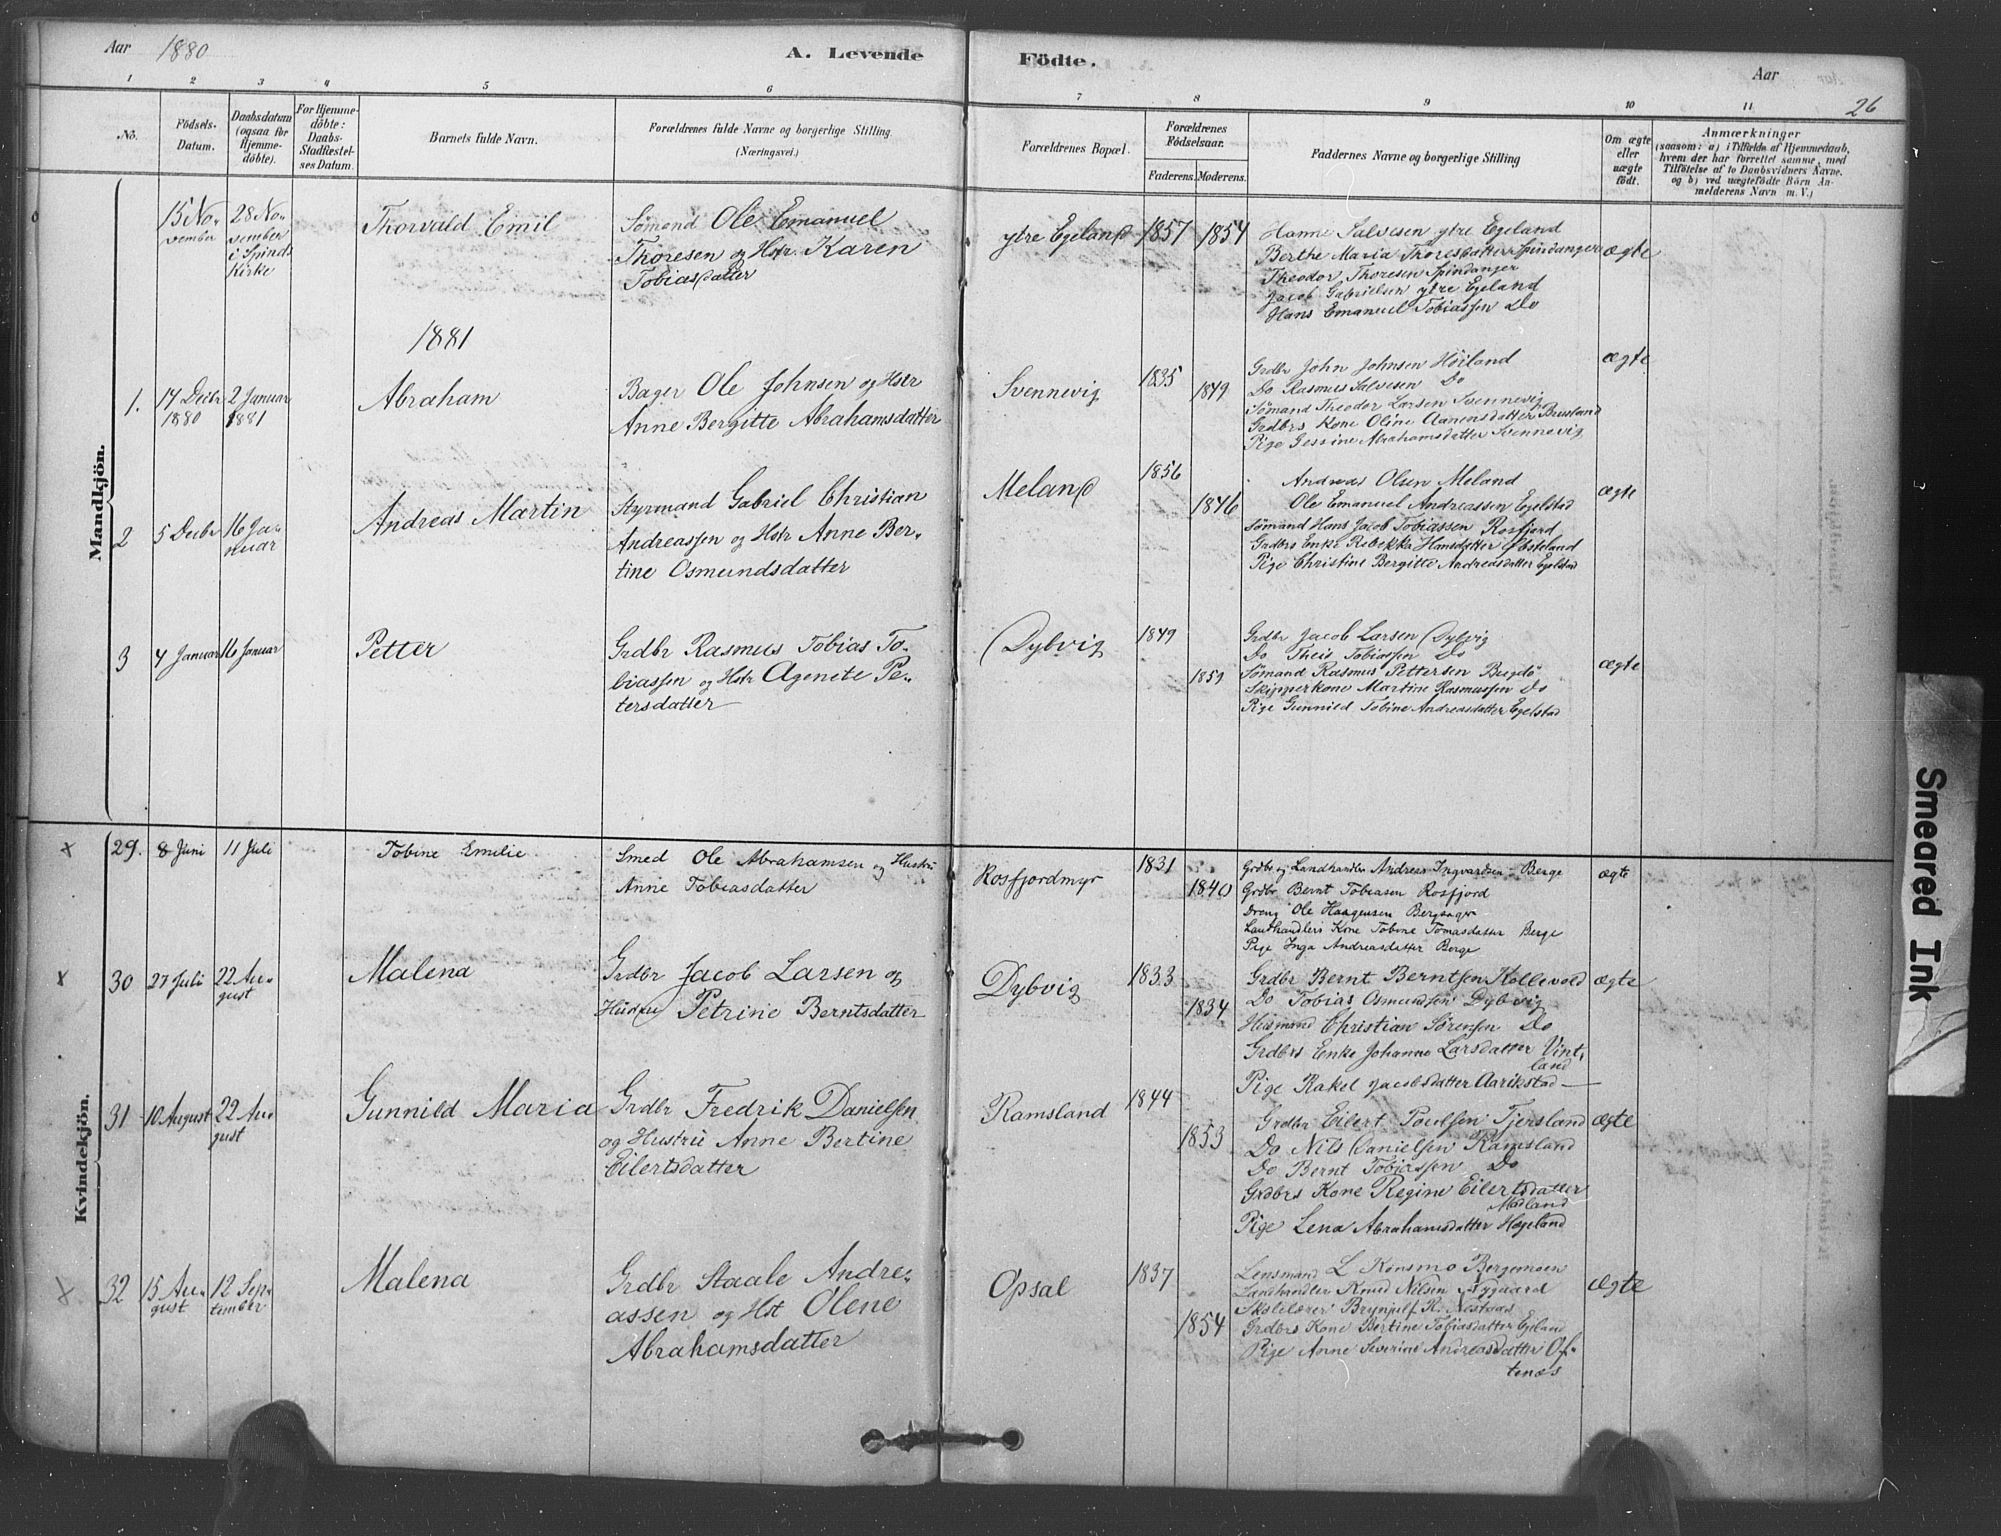 Aar 1880 A. Levende Fødte. Aar
26
1 2 3 4 5 6 7 8 9 10 11
No. Fødsels-Datum. Daabsdatum (ogsaa for Hjemmedøbte). For Hjemmedøbte: Daabs-Stadfæstelses Datum. Barnets fulde Navn. Forældrenes fulde Navne og borgerlige Stilling. (Næringsvei.) Forældrenes Bopæl. Forældrenes Fødselsaar. Faderens. Moderens. Faddernes Navne og borgerlige Stilling Om ægte eller uægte født. Anmærkninger (saasom: a) i Tilfælde af Hjemmedaab, hvem der har forrettet samme, med Tilføielse af to Daabsvidners Navne, og b) ved uægtefødte Børn Anmelderens Navn m. V.)
Mandkjön.
15 No-
vember
28 No-
vember
i Spinds
Kirke
Thorvald Emil
Sømand Ole Emanuel
Thoresen og Hstr. Karen
Tobiasdatter
ytre Egeland
1857 1854
Hanne Salvesen ytre Egeland
Berthe Maria Thoresdatter Spindanger
Theodor Thoresen Spindanger
Jacob Gabrielsen ytre Egeland
Hans Emanuel Tobiassen Do
ægte
1881
1. 14 Decbr
1880
2 Januar
1881
Abraham
Bager Ole Johnsen og Hstr
Anne Bergitte Abrahamsdatter
Svennevig
1835
1849
Grdbr John Johnsen Høiland
Do Rasmus Salvesen Do
Sømand Theodor Larsen Svennevig
Grdbrs Kone Oline Aanensdatter Brusland
Pige Gessine Abrahamsdatter Svennevig
ægte
2 5 Decbr
16 Ja-
nuar
Andreas Martin
Styrmand Gabriel Christian
Andreassen og Hstr Anne Ber-
tine Osmundsdatter
Meland
1856
1846
Andreas Olsen Meland
Ole Emanuel Andreassen Egelstad
Sømand Hans Jacob Tobiassen Rosfjord
Grdbrs Enke Rebekka Hansdatter
Pige Christine Bergitte Andreasdatter Egelstad
ægte
3 4 Januar 16 Januar
Petter
Grdbr Rasmus Tobias To-
biassen og Hstr Agenete Pe-
tersdatter
Dybvig
1849
Grdbr Jacob Larsen Dybvig
Do Theis Tobiassen Do
Sømand Rasmus Pettersen
Skipperkone Martine Rasmussen Do
Pige Gunnild Tobine Andreasdatter Egelstad
ægte
Kvindekjön.
x 29. 8 Juni 11 Juli
Tobine Emilie
Smed Ole Abrahamsen og Hustru
Anne Tobiasdatter
Rosfjordmyr
1831
1840
Grdbr og Landhandler Andreas Ingvardsen Berge
Grdbr Bernt Tobiasen Rosfjord
Dreng Ole Haagensen Bergsager
Landhandlers Kone Tobine Tomasdatter Berge
Pige Inga Andreasdatter Berge
ægte
x 30 27 Juli
22 Au-
gust
Malena
Grdbr Jacob Larsen og
Hustru Petrine Berntsdatter
Dybvig
1833
1834
Grdbr Bernt Berntsen Kollevold
Do Tobias Osmundsen Dybvig
Husmand Christian Sørensen Do
Grdbrs Enke Johanne Larsdatter Vint-
land
Pige Rakel Jacobsdatter Aarikstad
ægte
31 10 August
22 Au-
gust
Gunnild Maria
Grdbr Fredrik Danielsen
og Hustru Anne Bertine
Eilertsdatter
Ramsland
1844
1853
Grdbr Eilert Poulsen Tjersland
Do Nils Danielsen Ramsland
Do Bernt Tobiassen Do
Grdbrs Kone Regine Eilertsdatter
Madland
Pige Lena Abrahamsdatter Høgeland
ægte
x 32 15 Au-
gust
12 Sep-
tember
Malena
Grdbr Staale Andre-
assen og Hst Olene
Abrahamsdatter
Opsal
1837
1854
Lensmand L Konsmo Bergemoen
Landhandler Knud Nilsen Nygaard
Skolelærer Brynjulf R.
Grdbrs Kone Bertine Tobiasdatter Egeland
Pige Anne Severine Andreasdatter Of-
tenæs
ægte
Smeared Ink